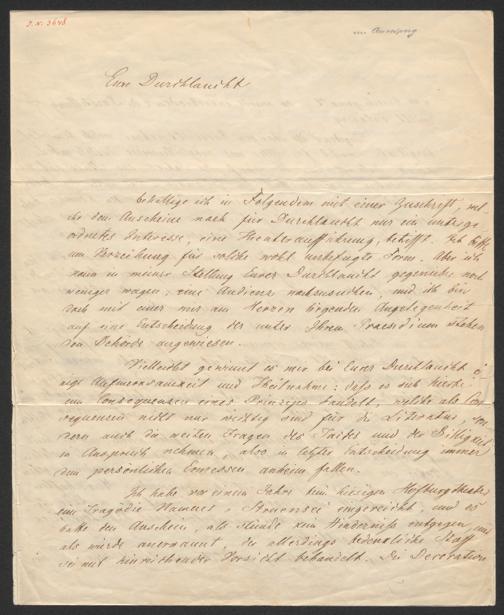 J. N. 3648
Eure Durchlaucht
behellige ich in Folgendem mit einer Zuschrift, wel-
che dem Anscheine nach für Durchlaucht nur ein unterge-
ordnetes Interesse, eine Theateraufführung, betrifft. Ich bitte
um Verzeihung für solche wohl unbefugte Form. Aber ich
kann in meiner Stellung Eurer Durchlaucht gegenüber noch
weniger wagen, eine Audienz nachzusuchen, und ich bin
doch mit einer mir am Herzen liegenden Angelegenheit
auf eine Entscheidung der unter Ihrem Praesidium stehen
den Behörde angewiesen.
Vielleicht gewinnt es mir bei Eurer Durchlaucht ei-
nige Aufmerksamkeit und Theilnahme: daß es sich hierbei
um Consequenzen eines Prinzipes handelt, welche als Con-
sequenzen nicht nur wichtig sind für die Literatur, son-
dern auch die weiten Fragen des Taktes und der Billigkeit
in Anspruch nehmen, also in letzter Entscheidung immer
dem persönlichen Ermessen anheim fallen.
Ich habe vor einem Jahre beim hiesigen Hofburgtheater
eine Tragödie Namens Struensee eingereicht, und es
hatte den Anschein, als stünde kein Hinderniß entgegen, und
als würde anerkannt, der allerdings bedenkliche Stoff
sei mit hinreichender Vorsicht behandelt. Die Decoration